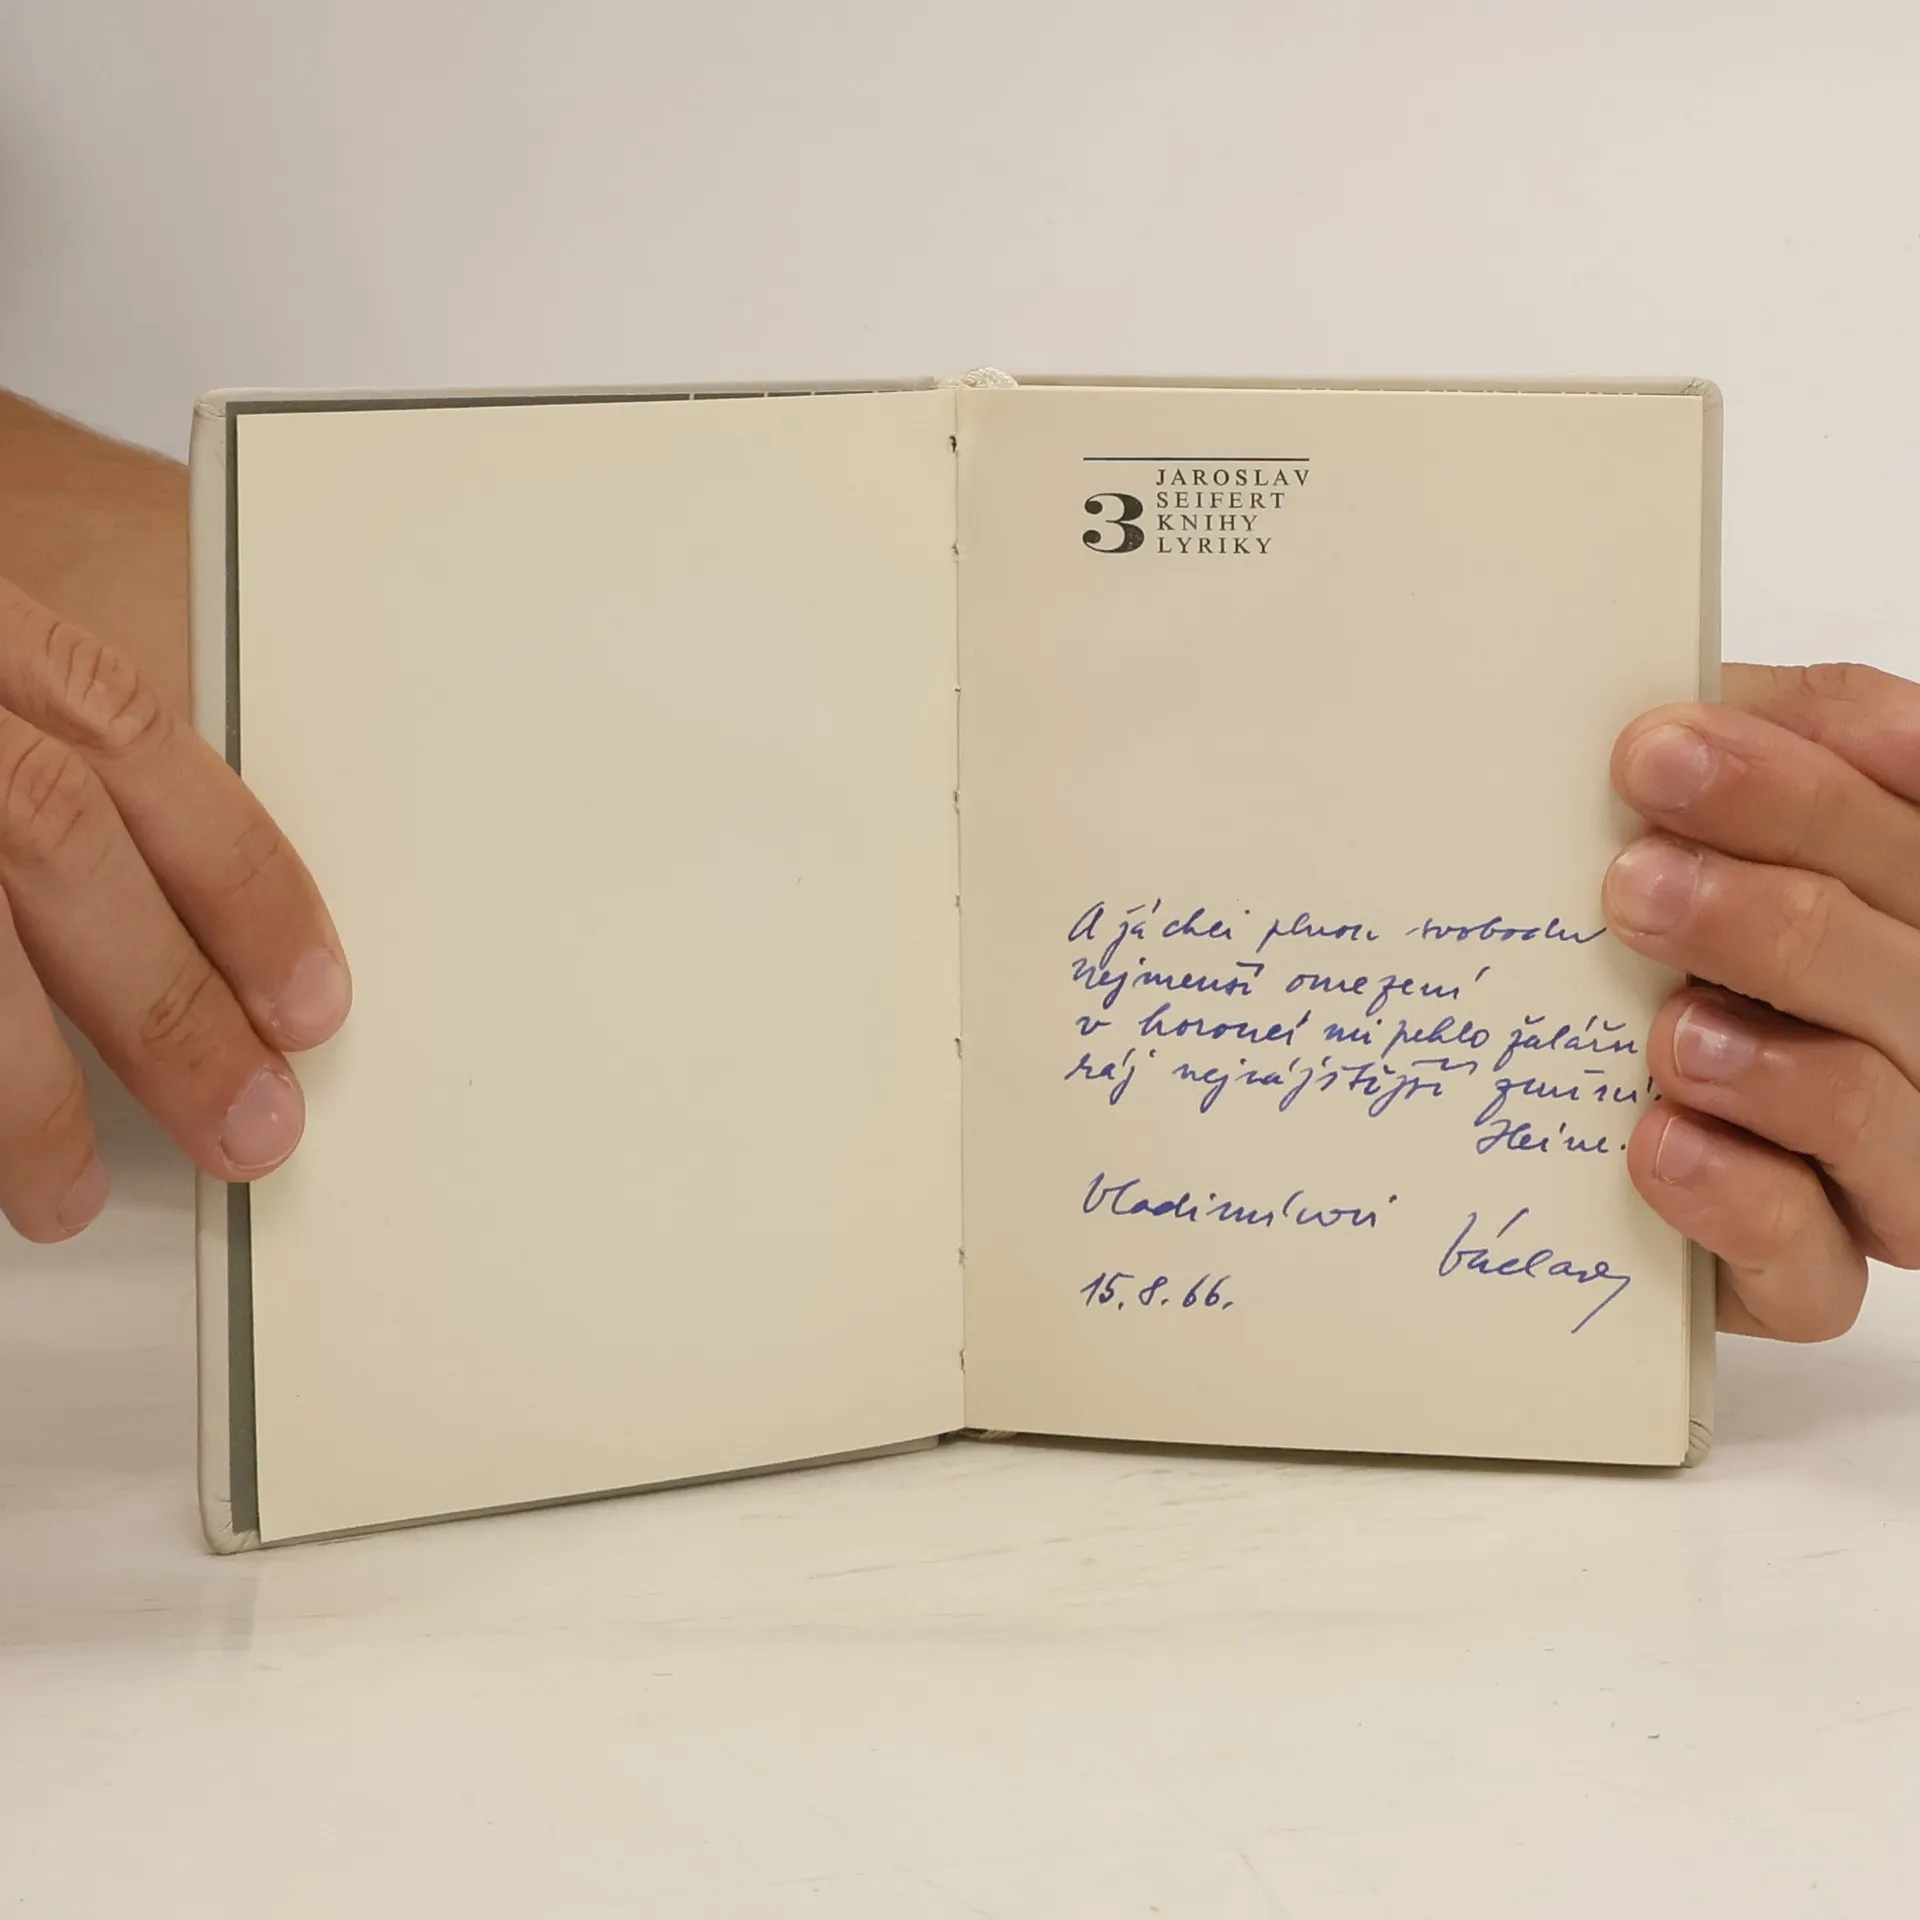 JAROSLAV
SEIFERT
3 KNIHY
LYRIKY
A já chci plnou svobodu
Nejmenší omezení
v horoucí mi peklo žalářn
ráj nejrájštější změní.
Heine.
Vladimírovi
Václav
15. 8. 66.